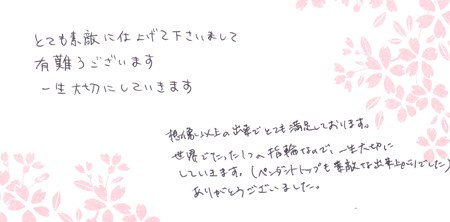 とても素敵に仕上げて下さいまして
有難うございます
一生大切にしていきます
想像以上の出来でとても満足しております。
世界でたった1つの指輪なので、一生大切に
していきます。(ペンダントトップも素敵な出来上がりでした)
ありがとうございました。